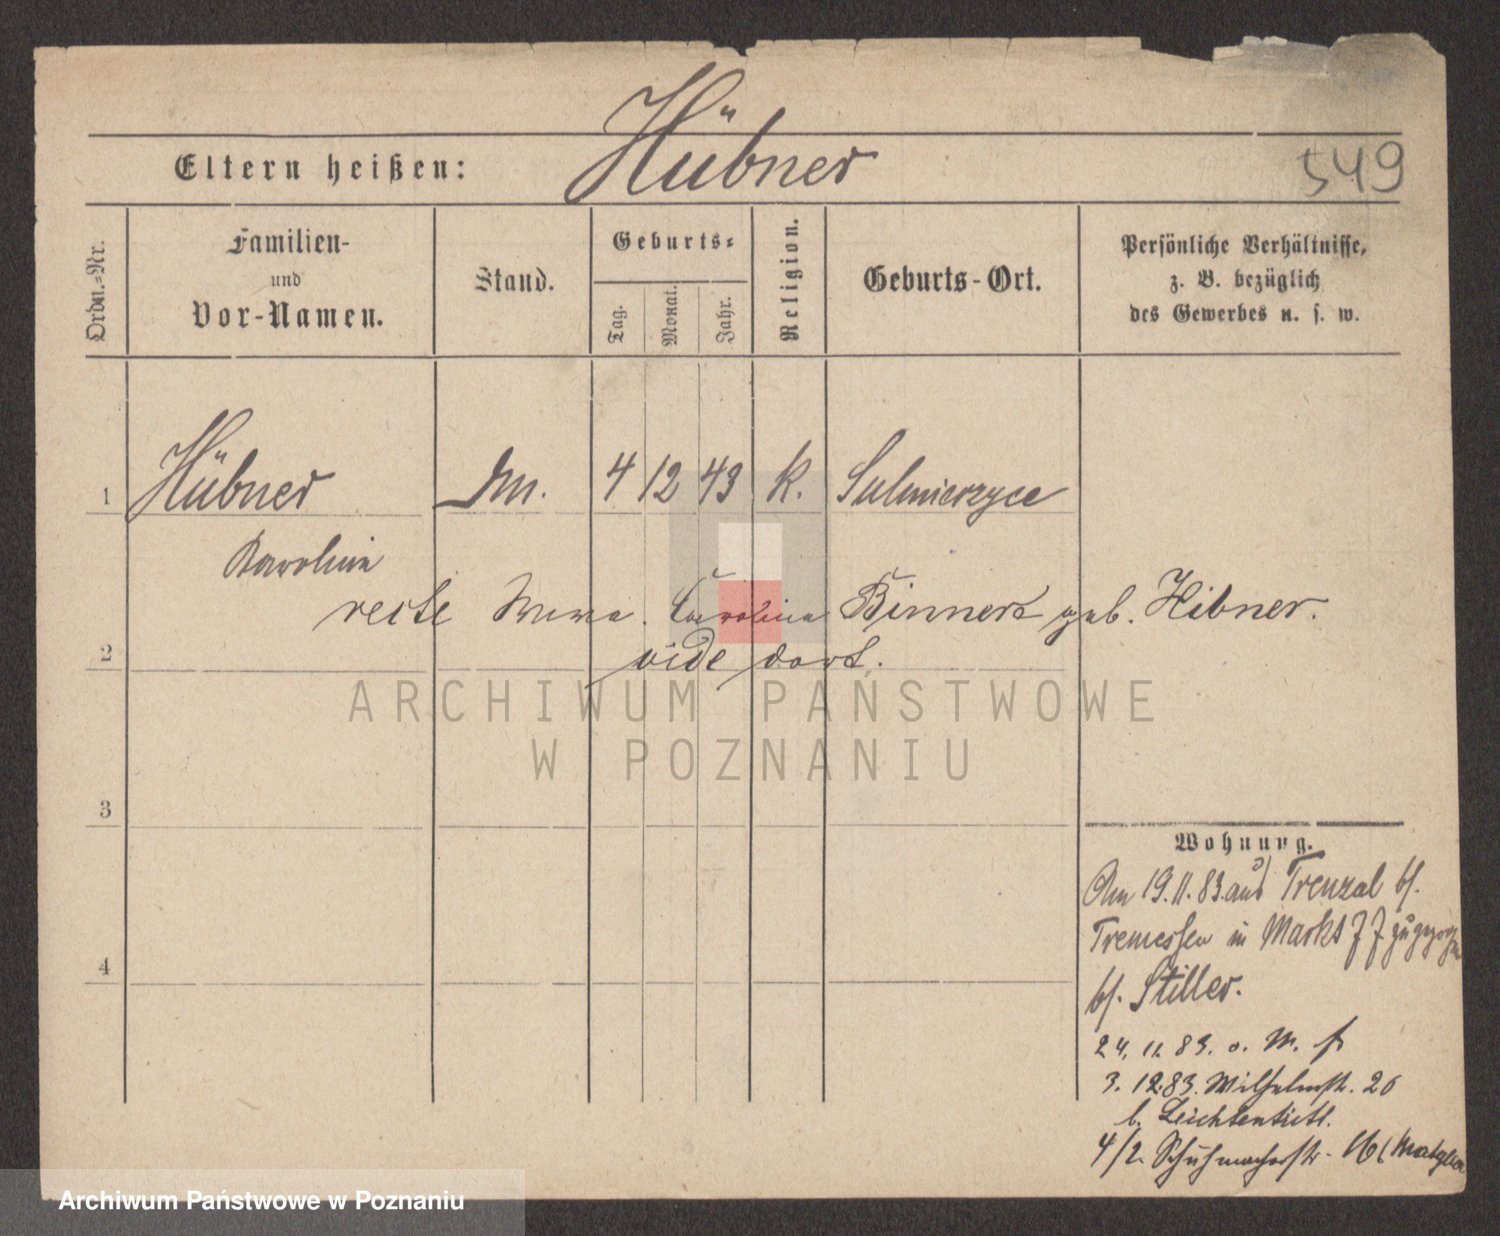 Hübner
Eltern heißen:
549
Ordn.-Nr.
Familien-
und
Vor-Namen.
Stand.
Geburts-
Tag.
Monat.
Jahr.
Religion.
Geburts-Ort.
Persönliche Verhältnisse,
z. B. bezüglich
des Gewerbes u. s. w.
1 Hübner 4 12 43 K. Sulmierzyce
Karolina
recte Wwe. Carolina Binnert geb. Hibner.
2 vide dort.
ARCHIWUM PAŃSTWOWE
W POZNANIU
3
Wohnung.
Am 19.11.83 aus Trenzal bf.
4 Tremessen in Markt 77 zugezogen
bf. Stiller.
24. 11. 83. o. M.
3. 12.83. Wilhelmstr. 26
b. Leichtentritt.
4/2. Schuhmacherstr. 16
Archiwum Państwowe w Poznaniu